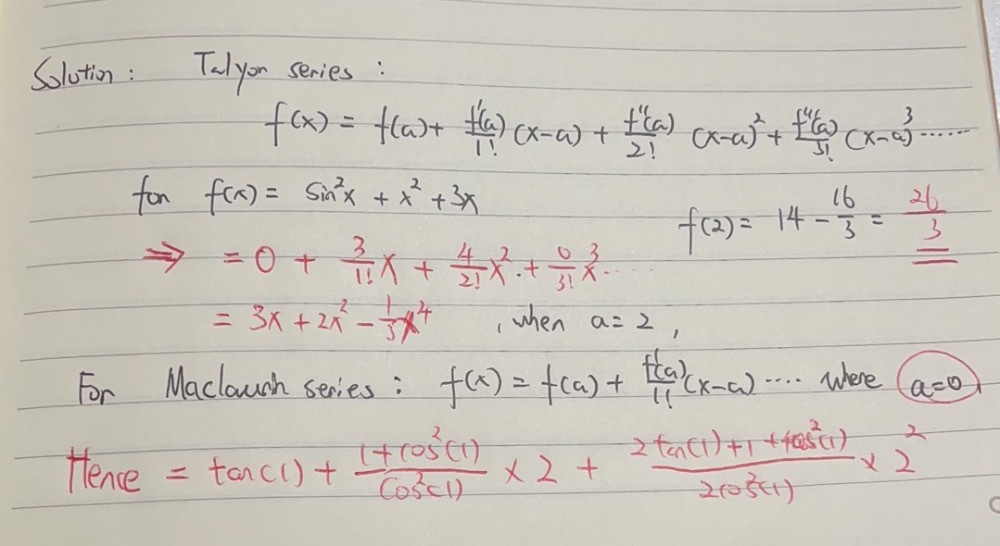 Solution : Talyor series :
f(x) = f(a) + f'(a)/1! (x-a) + f''(a)/2! (x-a)² + f'''(a)/3! (x-a)³ ......
for f(x) = sin²x + x² + 3x
f(2) = 14 - 16/3 = 26/3
⇒ = 0 + 3/1! x + 4/2! x² + 0/3! x³ ....
= 3x + 2x² - 1/3 x⁴ , when a = 2 ,
For Maclauch series : f(x) = f(a) + f'(a)/1! (x-a) .... where a=0
Hence = tan(1) + (1+cos²(1))/cos²(1) × 2 + (2tan(1)+1+cos²(1))/2cos²(1) × 2²